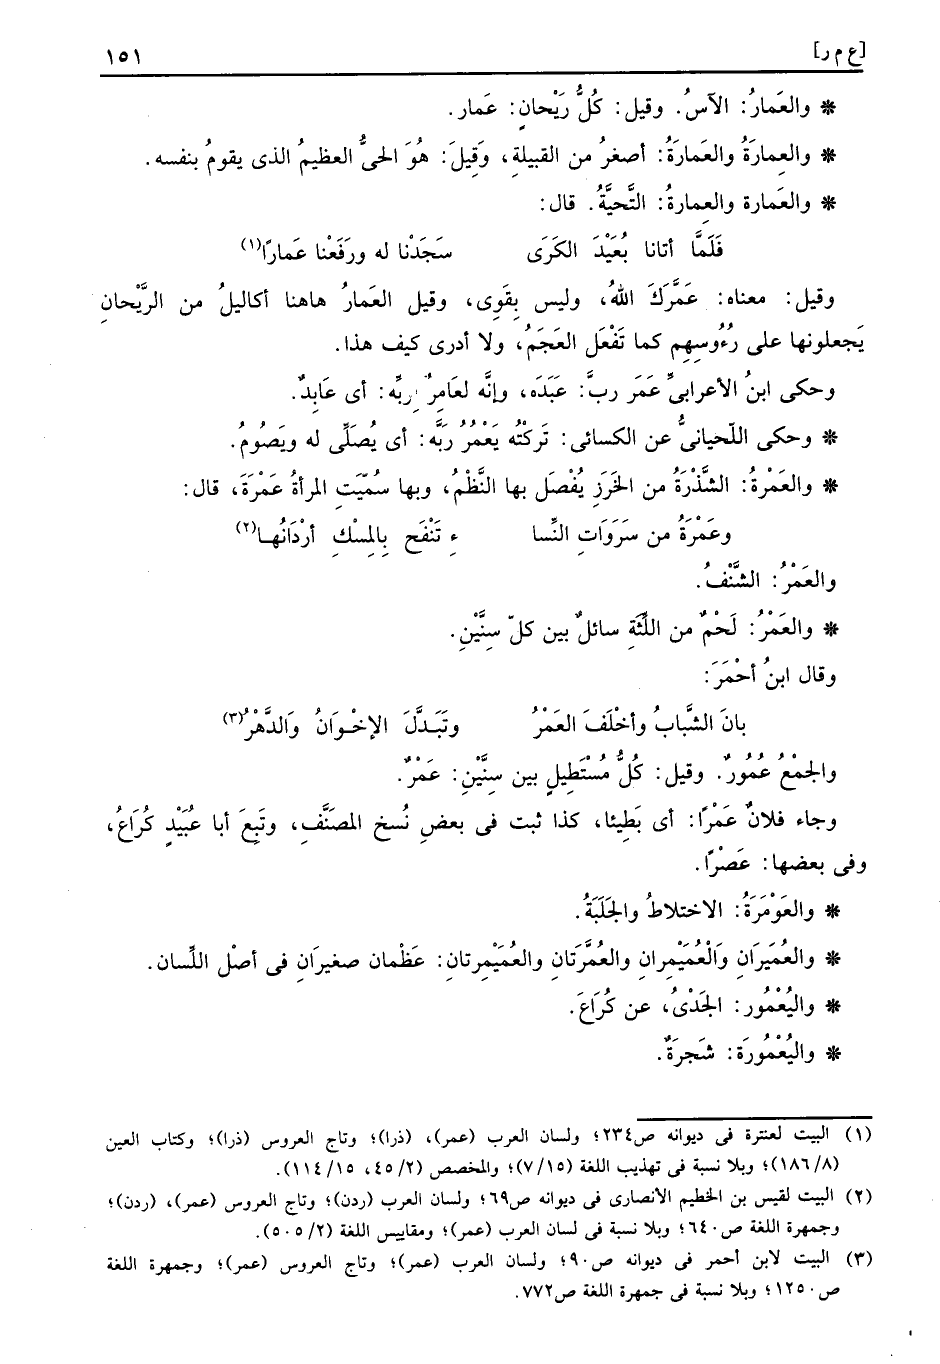 [ع م ر] ١٥١
* والعَمارُ: الآسُ. وقيل: كُلُّ رَيْحانٍ: عَمار.
* والعِمارَةُ والعَمارَةُ: أصغرُ من القبيلةِ، وَقِيلَ: هُوَ الحىُّ العظيمُ الذى يقومُ بنفسه.
* والعَمارة والعِمارةُ: التَّحيَّةُ. قال:
فَلَمَّا أتانا بُعَيْدَ الكَرَى سَجَدْنا له ورَفَعْنا عَمارًا(١)
وقيل: معناه: عَمَّرَكَ اللهُ، وليس بِقَوِى، وقيل العَمارُ هاهنا أكاليلُ من الرَّيْحانِ
يَجعلونها على رُءُوسِهِم كما تَفْعَل العَجَمُ، ولا أدرى كيف هذا.
وحكى ابنُ الأعرابىِّ عَمَر ربَّ: عَبَدَه، وإنَّه لعَامِرٌ رِبِّه: أى عَابِدٌ.
* وحكى اللّحيانىُّ عن الكسائى: تَركتُه يَعْمُرُ رَبَّه: أى يُصَلِّى له ويَصُومُ.
* والعَمْرةُ: الشَّذْرَةُ من الخَرَزِ يُفْصَل بها النَّظْمُ، وبها سُمِّيَتِ المرأةُ عَمْرَةَ، قال:
وعَمْرَةُ من سَرَوَاتِ النِّسا ءِ تَنْفَح بِالمِسْكِ أرْدَانُهـا(٢)
والعَمْرُ: الشَّنْفُ.
* والعَمْرُ: لَحْمٌ من اللِّثَةِ سائلٌ بين كلّ سِنَّيْنِ.
وقال ابنُ أحْمَرَ:
بانَ الشَّبابُ وأخْلَفَ العَمْرُ وتَبَـدَّلَ الإخْـوَانُ وَالدَّهْرُ(٣)
والجَمْعُ عُمُورٌ. وقيل: كُلُّ مُسْتَطِيلٍ بين سِنَّيْنِ: عَمْرٌ.
وجاء فلانٌ عَمْرًا: أى بَطِيئا، كذا ثبت فى بعضِ نُسخ المصَنَّف، وتَبِعَ أبا عُبَيْدٍ كُرَاعُ،
وفى بعضها: عَصْرًا.
* والعَوْمَرَةُ: الاختلاطُ والجَلَبَةُ.
* والعُمَيَرَانِ وَالْعُمَيْمِرانِ والعُمَّرَتَانِ والعُمَيْمِرتانِ: عَظْمان صغيرَانِ فى أصْل اللِّسان.
* واليُعْمُور: الجَدْىُ، عن كُرَاعَ.
* واليُعْمُورَة: شَجرَةٌ.
(١) البيت لعنترة فى ديوانه ص٢٣٤؛ ولسان العرب (عمر)، (ذرا)؛ وتاج العروس (ذرا)؛ وكتاب العين
(٨/ ١٨٦)؛ وبلا نسبة فى تهذيب اللغة (٧/١٥)؛ والمخصص (٢/ ٤٥، ١٥/ ١١٤).
(٢) البيت لقيس بن الخطيم الأنصارى فى ديوانه ص٦٩؛ ولسان العرب (ردن)؛ وتاج العروس (عمر)، (ردن)؛
وجمهرة اللغة ص٦٤٠؛ وبلا نسبة فى لسان العرب (عمر)؛ ومقاييس اللغة (٢/ ٥٠٥).
(٣) البيت لابن أحمر فى ديوانه ص٩٠؛ ولسان العرب (عمر)؛ وتاج العروس (عمر)؛ وجمهرة اللغة
ص١٢٥٠؛ وبلا نسبة فى جمهرة اللغة ص٧٧٢.